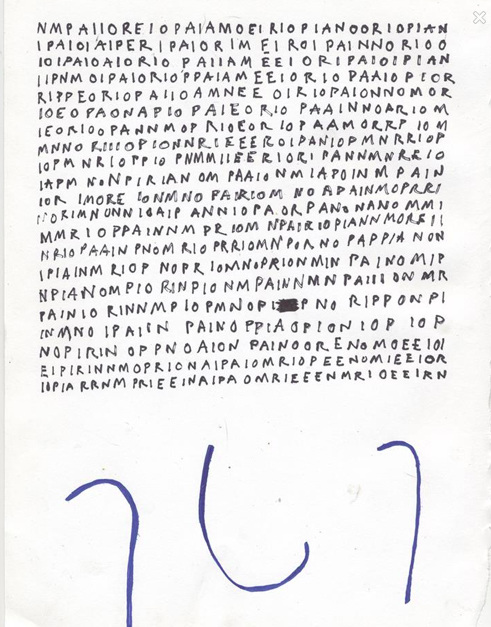 NMPAIIOREIOPAIAMOEIRIOPIANOORIOPIAN
IPAIOIAIPERIPAIORIMEIROIPAINNORIOO
IOIPAIOAIORIO PAIIAMEEIORIPAIOIPIAN
IIPNMOIPAIORIOPPAIAMEEIORIOPAAIOPIOR
RIPPEORIOPAIIOAMNEE OIRIOPAIONNOMOR
IOEOPAONAPIO PAIEORIO PAAINNOARIOM
IEORIOOPANNMOPRIOEORIOPAAMORRPIOM
IOPMNRIOPPIO PNMMIIEERIORIPANNMNREIO
IAPM NONPIRIANOM PAAIONMIAPOINMPAIN
IOR IMORE IONMNO PAIRIOM NOAPAINMOPRRI
MMRIOPPAINNM PRIOM NPAIRIOPIANNMOREII
NRIOPAAINPNOMRIOPRRIOMNPORNO PAPPIANON
IPIAINM RIOP NOPRIOMNOPRIONMIN PAINOMIP
NPIANOMPIORINPIONMPAINNMNPAIIIONMR
PAINIORINNMPIOPMNOPI PNO RIPPONPI
INMNO IPAIIN PAINOPPIAOPIONIOPIOP
NOPIRINOPPNOAIONPAINOORENOMOEEIOI
EIPIRINNMOPRIONAIPAIOMRIOPEENOMIEEIOR
IOPIARRNMPRIEEINAIPAOMRIEEENMRIOEEIRN